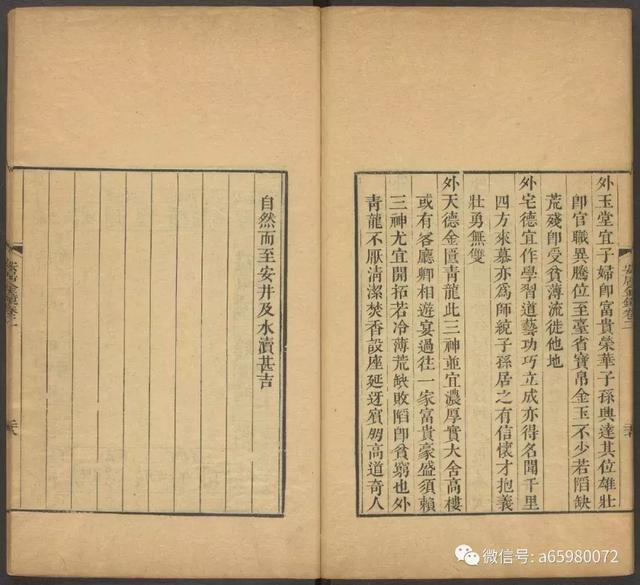 外玉堂宜子婦卽富貴榮華子孫興達其位雄壯
卽官職異騰位至臺省寶帛金玉不少若陷缺
荒殘卽受貧薄流徙他地
外宅德宜作學習道藝功巧立成亦得名聞千里
四方來慕亦爲師統子孫居之有信懷才抱義
壯勇無雙
外天德金匱青龍此三神並宜濃厚實大舍高樓
或有客廳卿相遊宴過往一家富貴豪盛須賴
三神尤宜開拓若冷薄荒缺敗陷卽貧窮也外
青龍不厭淸潔焚香設座延迓賓朋高道奇人
自然而至安井及水瀆甚吉
微信号: a65980072